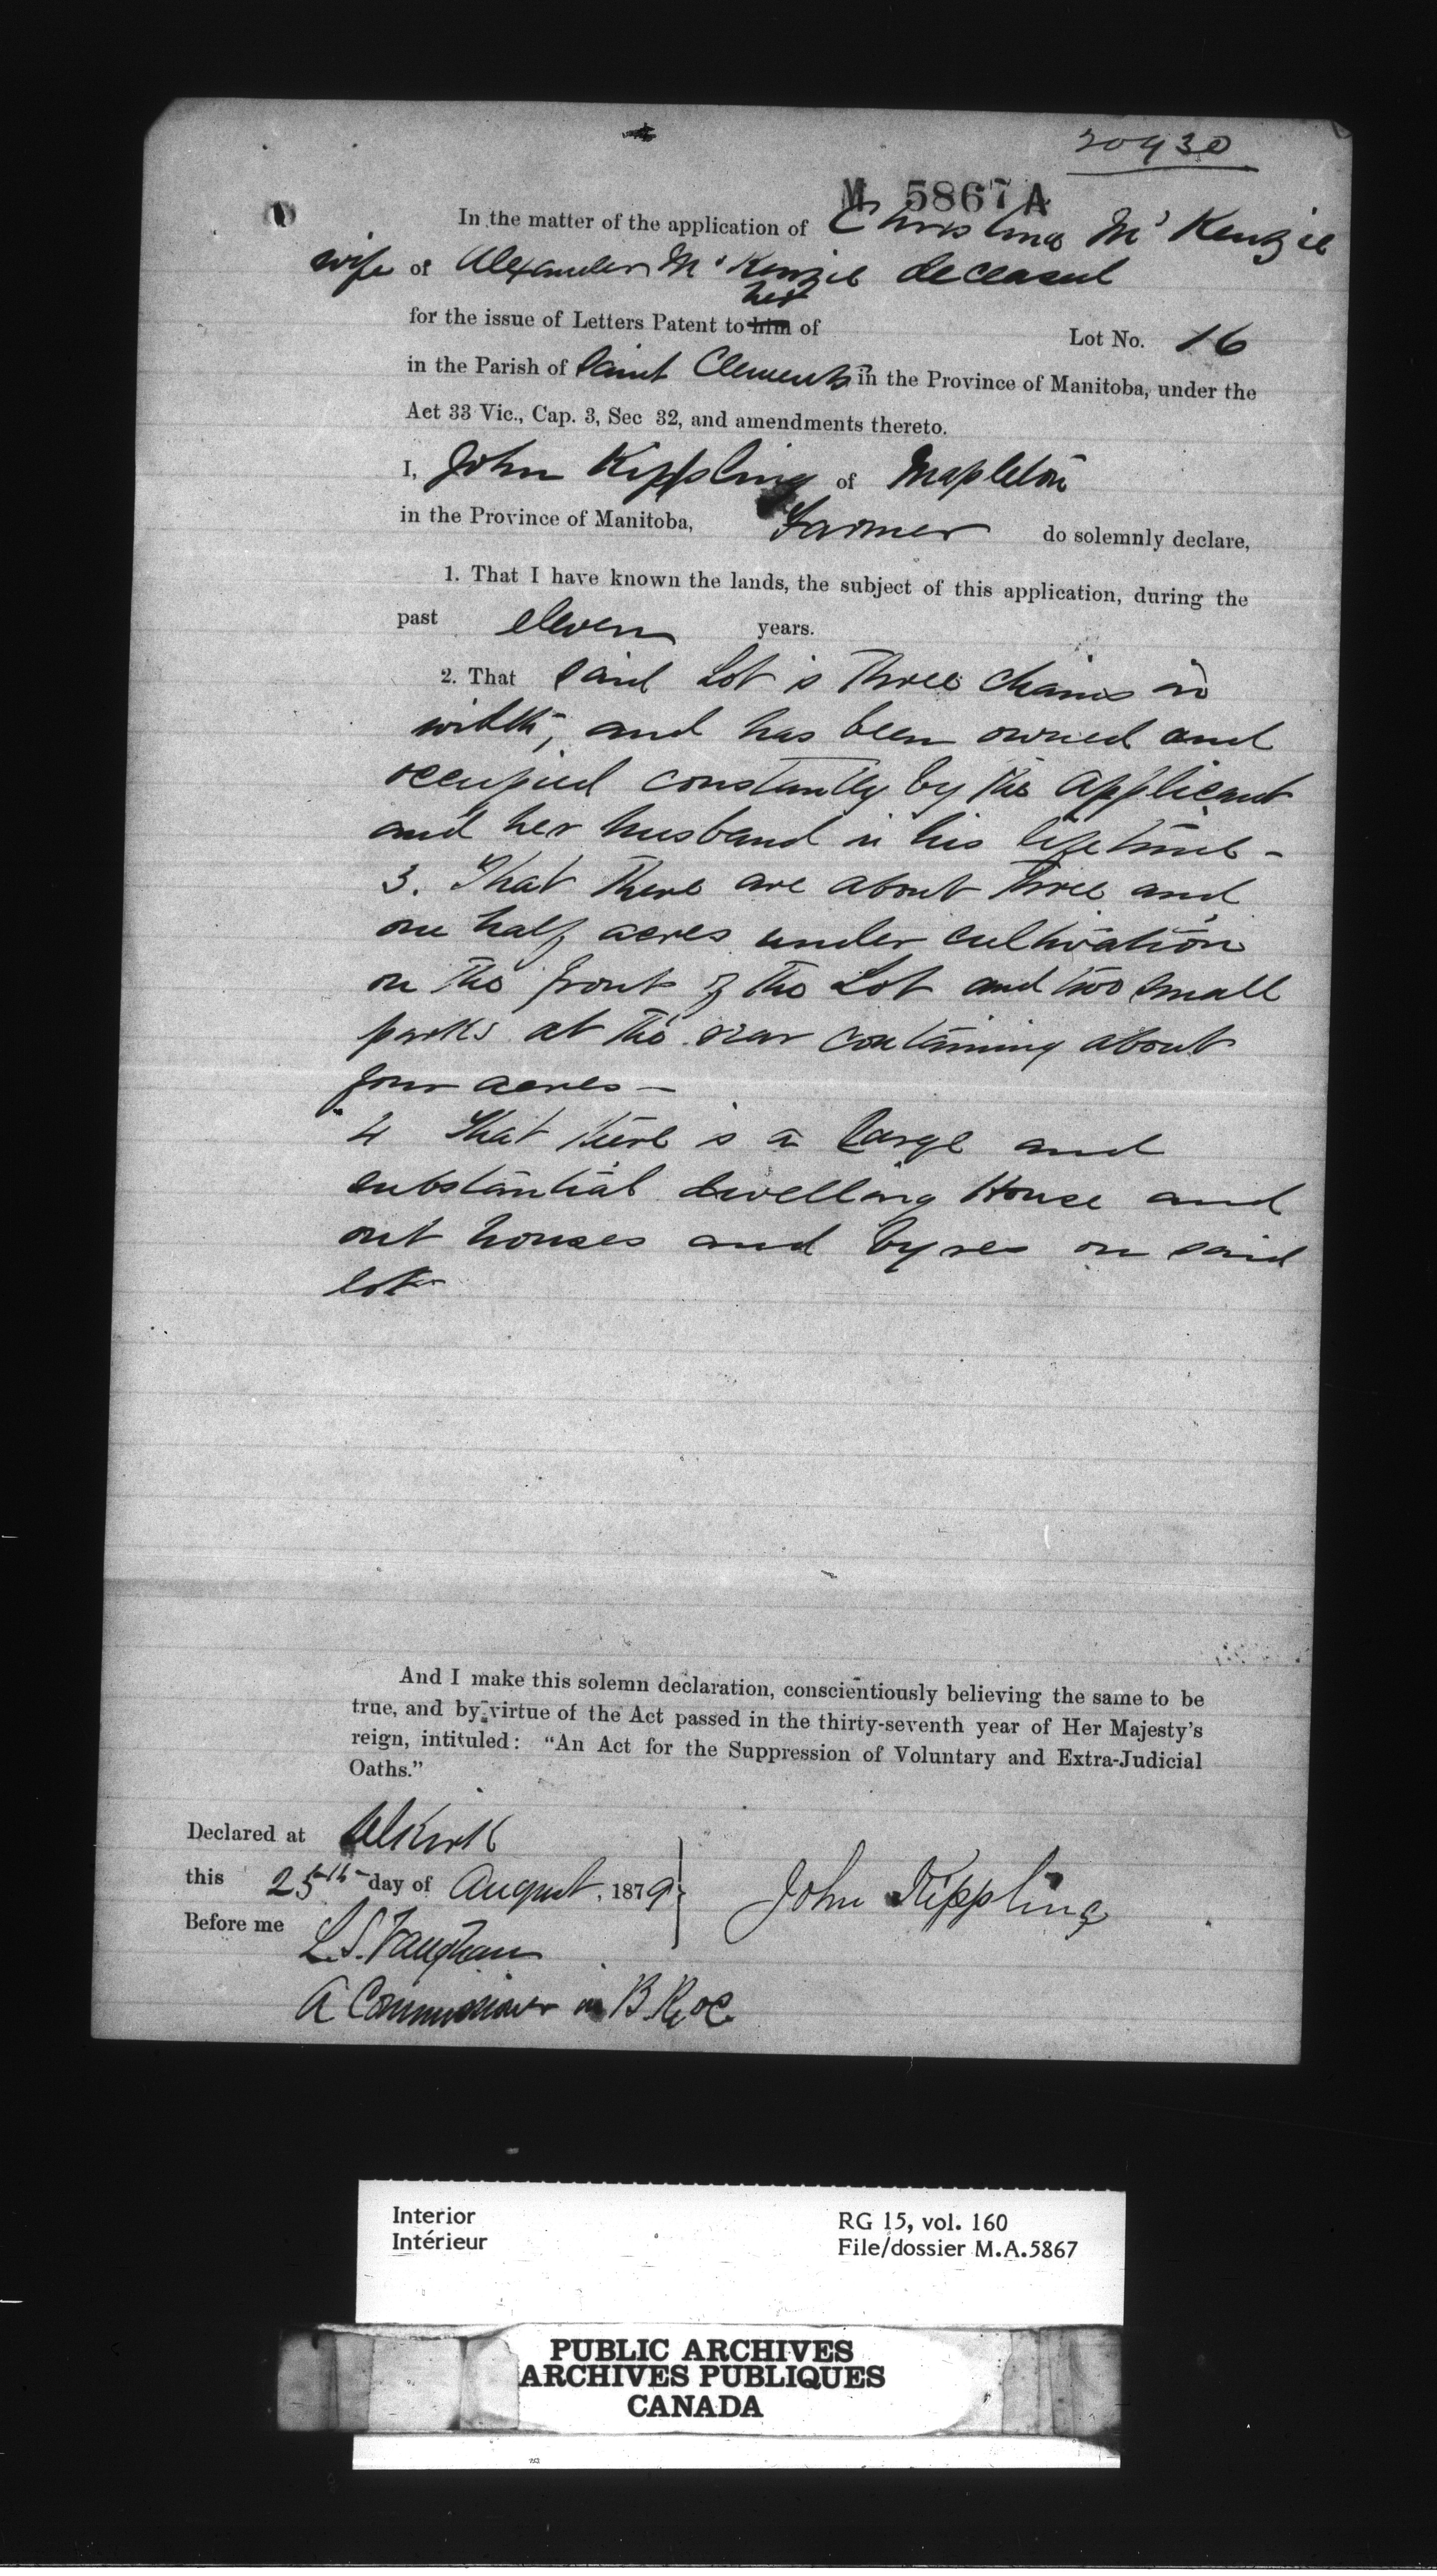 20930
M 5867 A
In the matter of the application of Christina McKenzie
wife of Alexander McKenzie deceased
her
for the issue of Letters Patent to him of Lot No. 16
in the Parish of Saint Clements in the Province of Manitoba, under the
Act 33 Vic., Cap. 3, Sec 32, and amendments thereto.
I, John Kippling of Mapleton
in the Province of Manitoba, Farmer do solemnly declare,
1. That I have known the lands, the subject of this application, during the
past eleven years.
2. That said Lot is Three chains in
width, and has been owned and
occupied constantly by the applicant
and her husband in his life time -
3. That there are about Three and
one half acres under cultivation
on the front of the Lot and two small
parks at the rear containing about
four acres -
4 That there is a large and
substantial dwelling House and
out houses and byres on said
lot
And I make this solemn declaration, conscientiously believing the same to be
true, and by virtue of the Act passed in the thirty-seventh year of Her Majesty's
reign, intituled: "An Act for the Suppression of Voluntary and Extra-Judicial
Oaths."
Declared at Selkirk
this 25th day of August, 1879
Before me
John Kippling
L.S. Vaughan
A Commissioner in B.R. &c.
Interior
Intérieur
RG 15, vol. 160
File/dossier M.A.5867
PUBLIC ARCHIVES
ARCHIVES PUBLIQUES
CANADA